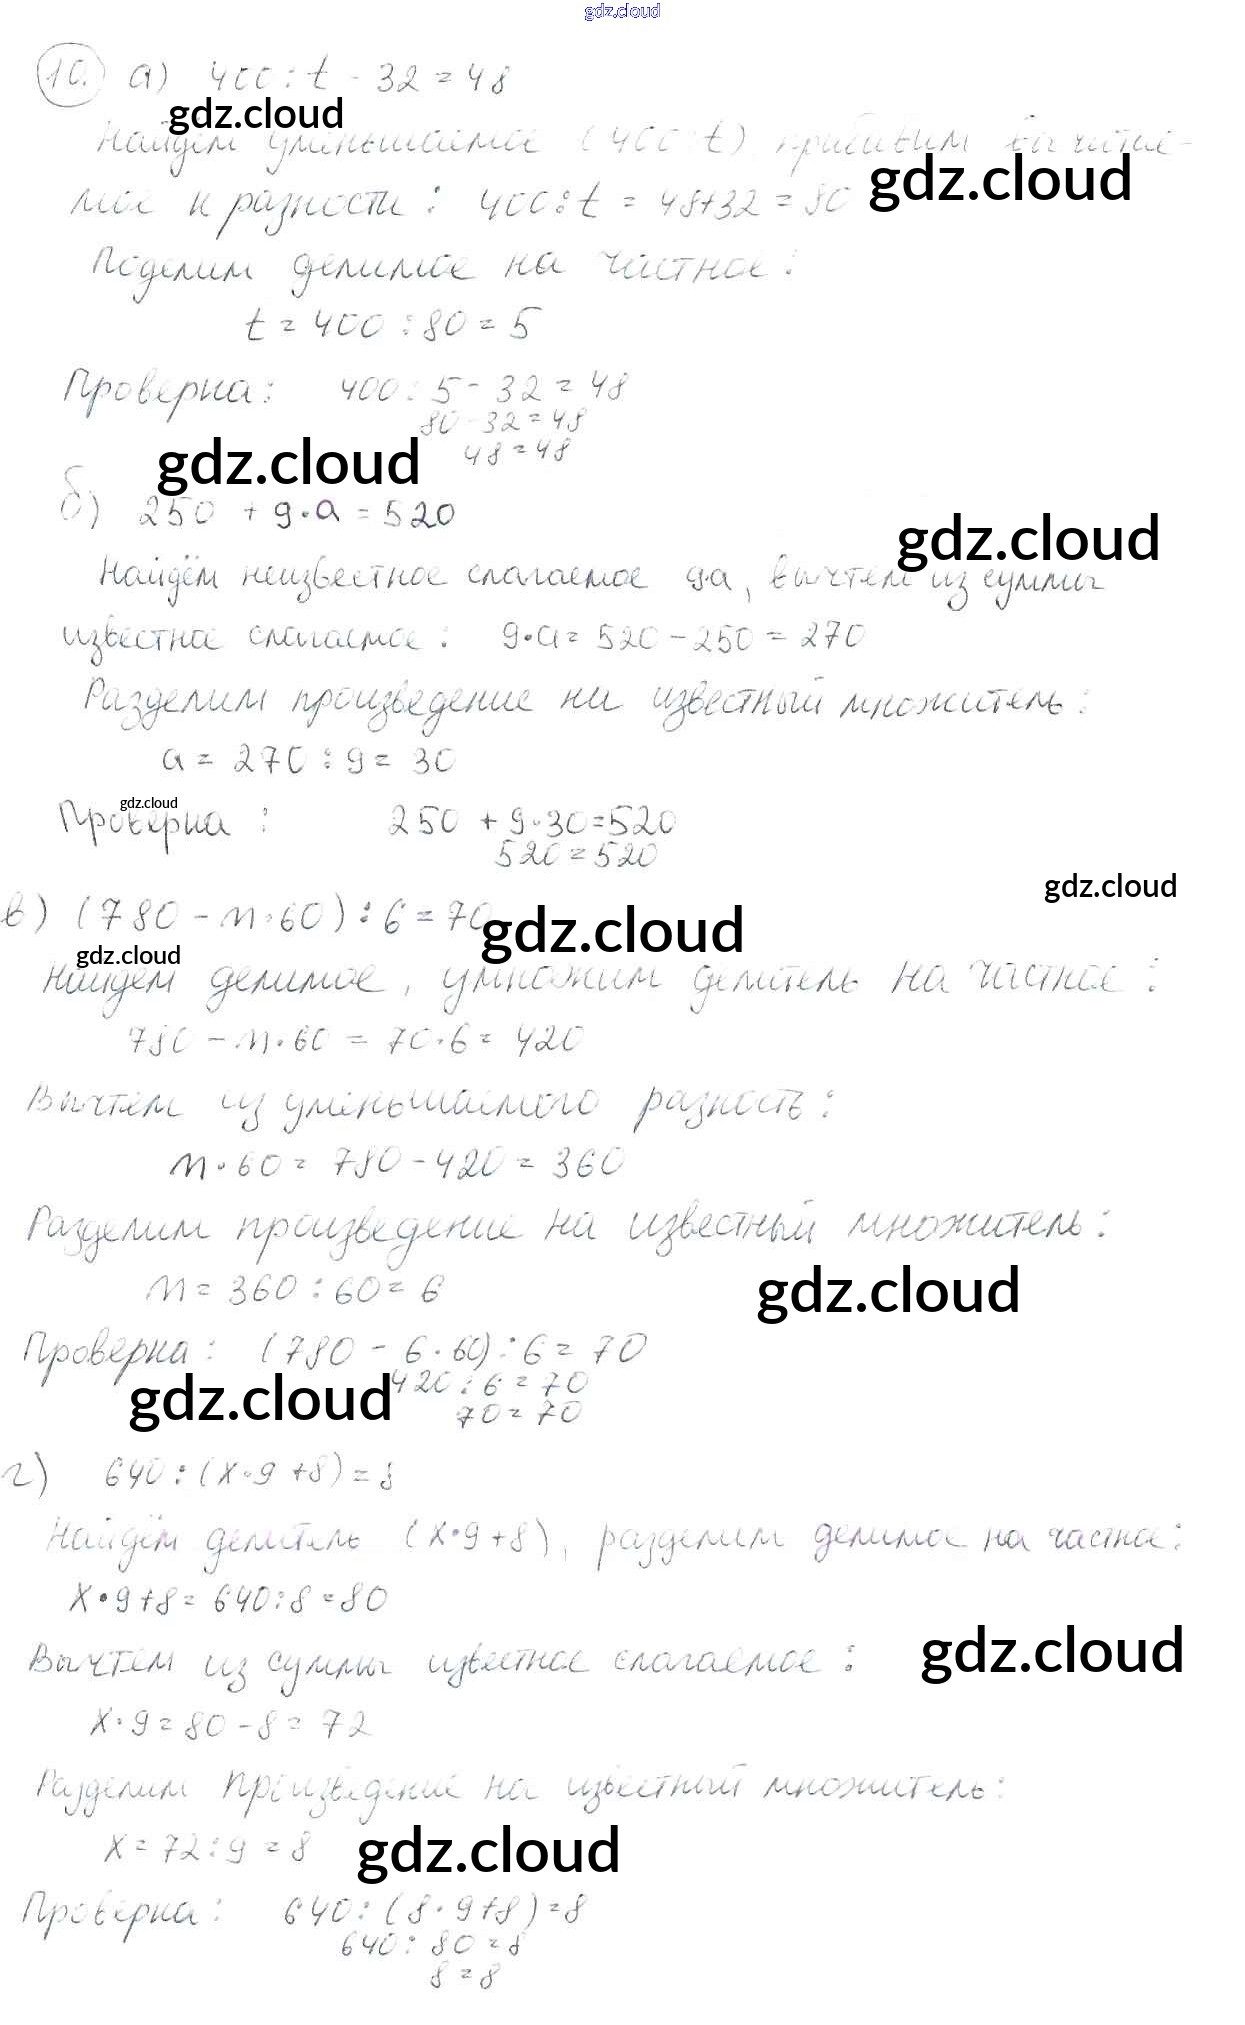 gdz.cloud
10. а) 400 : t - 32 = 48
gdz.cloud
Найдём уменьшаемое (400:t) прибавим вычитае-
gdz.cloud
мое к разности : 400:t = 48+32 = 80
Поделим делимое на частное :
t = 400 : 80 = 5
Проверка : 400 : 5 - 32 = 48
80 - 32 = 48
48 = 48
gdz.cloud
б) 250 + 9·а = 520
gdz.cloud
Найдём неизвестное слагаемое 9·а, вычтем из суммы
известное слагаемое : 9·а = 520 - 250 = 270
Разделим произведение на известный множитель :
а = 270 : 9 = 30
gdz.cloud
Проверка : 250 + 9·30 = 520
520 = 520
gdz.cloud
в) (780 - n·60) : 6 = 70
gdz.cloud
gdz.cloud
Найдём делимое, умножим делитель на частное :
780 - n·60 = 70·6 = 420
Вычтем из уменьшаемого разность :
n·60 = 780 - 420 = 360
Разделим произведение на известный множитель :
n = 360 : 60 = 6
gdz.cloud
Проверка : (780 - 6·60) : 6 = 70
420 : 6 = 70
gdz.cloud
70 = 70
г) 640 : (х·9 + 8) = 8
Найдём делитель (х·9+8), разделим делимое на частное :
х·9+8 = 640:8 = 80
gdz.cloud
Вычтем из суммы известное слагаемое :
х·9 = 80 - 8 = 72
Разделим произведение на известный множитель :
х = 72 : 9 = 8
gdz.cloud
Проверка : 640 : (8·9+8) = 8
640 : 80 = 8
8 = 8